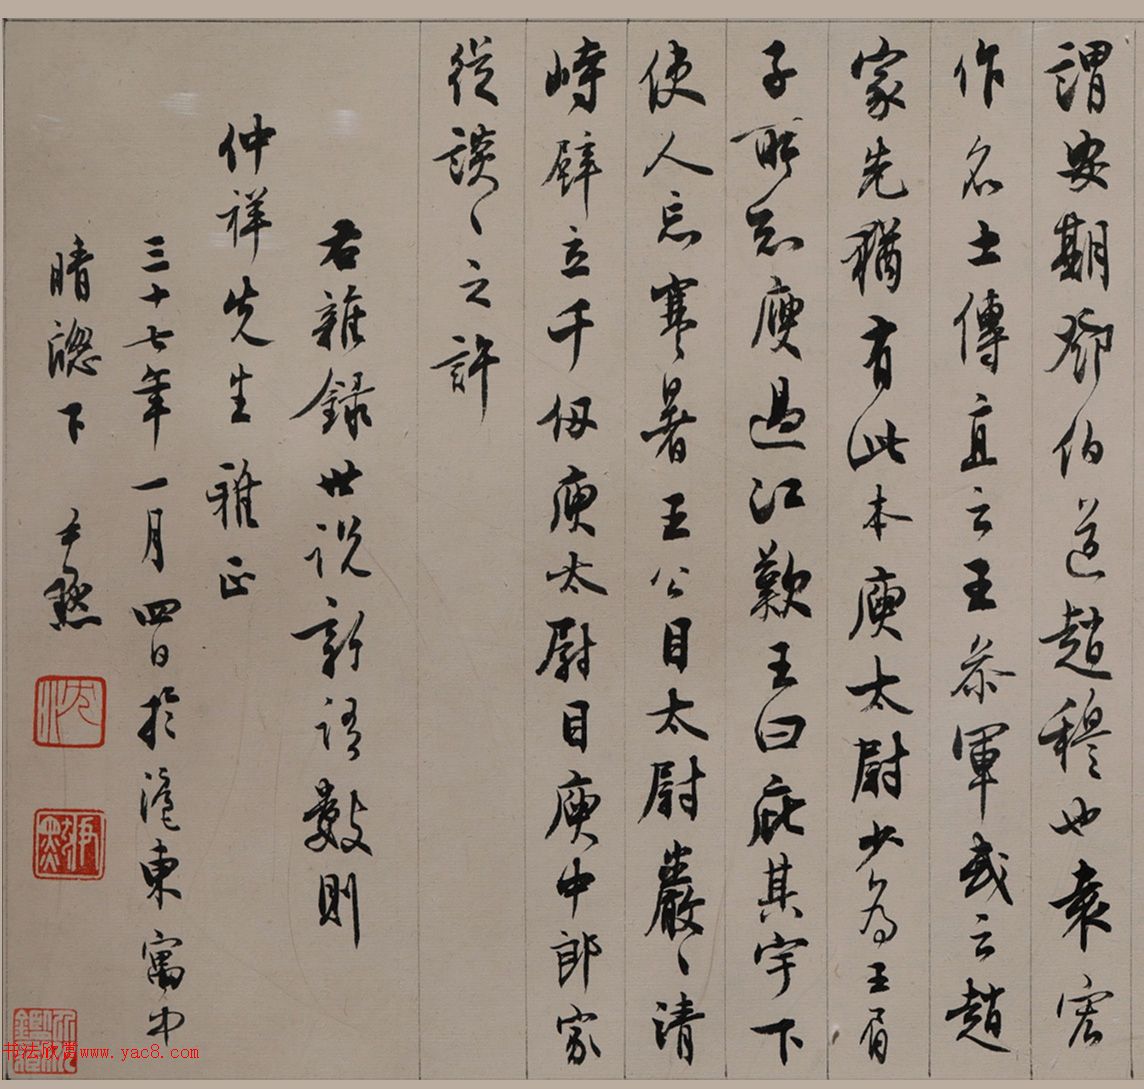 謂安期鄧伯道趙穆也袁宏
作名士傳直云王叅軍或云趙
家先猶有此本庾太尉少為王眉
子所知庾過江歎王曰庇其宇下
使人忘寒暑王公目太尉巖〻清
峙壁立千仞庾太尉目庾中郎家
從談〻之許
右雜錄世說新語數則
仲祥先生雅正
三十七年一月四日於滬東寓中
晴牕下 尹默
沈
尹默
书法欣赏www.yac8.com